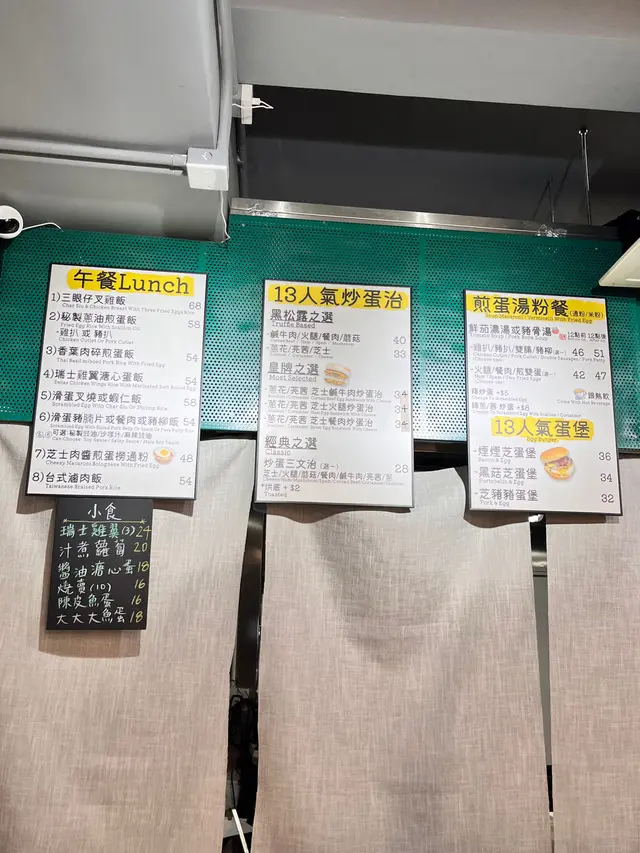 午餐Lunch
1)三眼仔叉雞飯 68
Char Siu & Chicken Breast With Three Fried Eggs Rice
2)秘製蔥油煎蛋飯 58
Fried Egg Rice With Scallion Oil
-雞扒 或 豬扒
Chicken Cutlet Or Pork Cutlet
3)香葉肉碎煎蛋飯 54
Thai Basil Minced Pork Rice With Fried Egg
4)瑞士雞翼溏心蛋飯 54
Swiss Chicken Wings Rice With Marinated Soft Boiled Egg
5)滑蛋叉燒或蝦仁飯 58
Scrambled Egg With Char Siu Or Shrimp Rice
6)滑蛋豬腩片或餐肉或豬柳飯 54
可選:秘製豉油/沙嗲汁/麻辣豉油
7)芝士肉醬煎蛋撈通粉 48
Cheesy Macaroni Bolognese With Fried Egg
8)台式滷肉飯 54
Taiwanese Braised Pork Rice
小食
瑞士雞翼(3) 24
汁煮蘿蔔 20
醬油溏心蛋 18
燒賣(10) 16
陳皮魚蛋 16
大大大魚蛋 18
13人氣炒蛋治
黑松露之選
Truffle Based
鹹牛肉/火腿/餐肉/蘑菇 40
蔥花/芫茜/芝士 33
皇牌之選
Most Selected
蔥花/芫茜 芝士鹹牛肉炒蛋治 34
蔥花/芫茜 芝士火腿炒蛋治 34
蔥花/芫茜 芝士餐肉炒蛋治 34
經典之選
Classic
炒蛋三文治(選一) 28
芝士/火腿/蘑菇/餐肉/鹹牛肉/芫茜/蔥
+烘底 + $2
Toasted
煎蛋湯粉餐(通粉/米粉)
Soup Macaroni / Vermicelli With Fried Egg
鮮茄濃湯或豬骨湯 12點前 12點後
Tomato Soup / Pork Bone Soup
-雞扒/豬扒/雙腸/豬柳(選一) 46 51
-火腿/餐肉/煎雙蛋(選一) 42 47
轉炒蛋 +$5
跟熱飲
Come With Hot Beverages
13人氣蛋堡
Egg Burger
-煙煙芝蛋堡 36
Bacon & Egg
-黑菇芝蛋堡 34
Portobello & Egg
-芝豬豬蛋堡 32
Pork & Egg